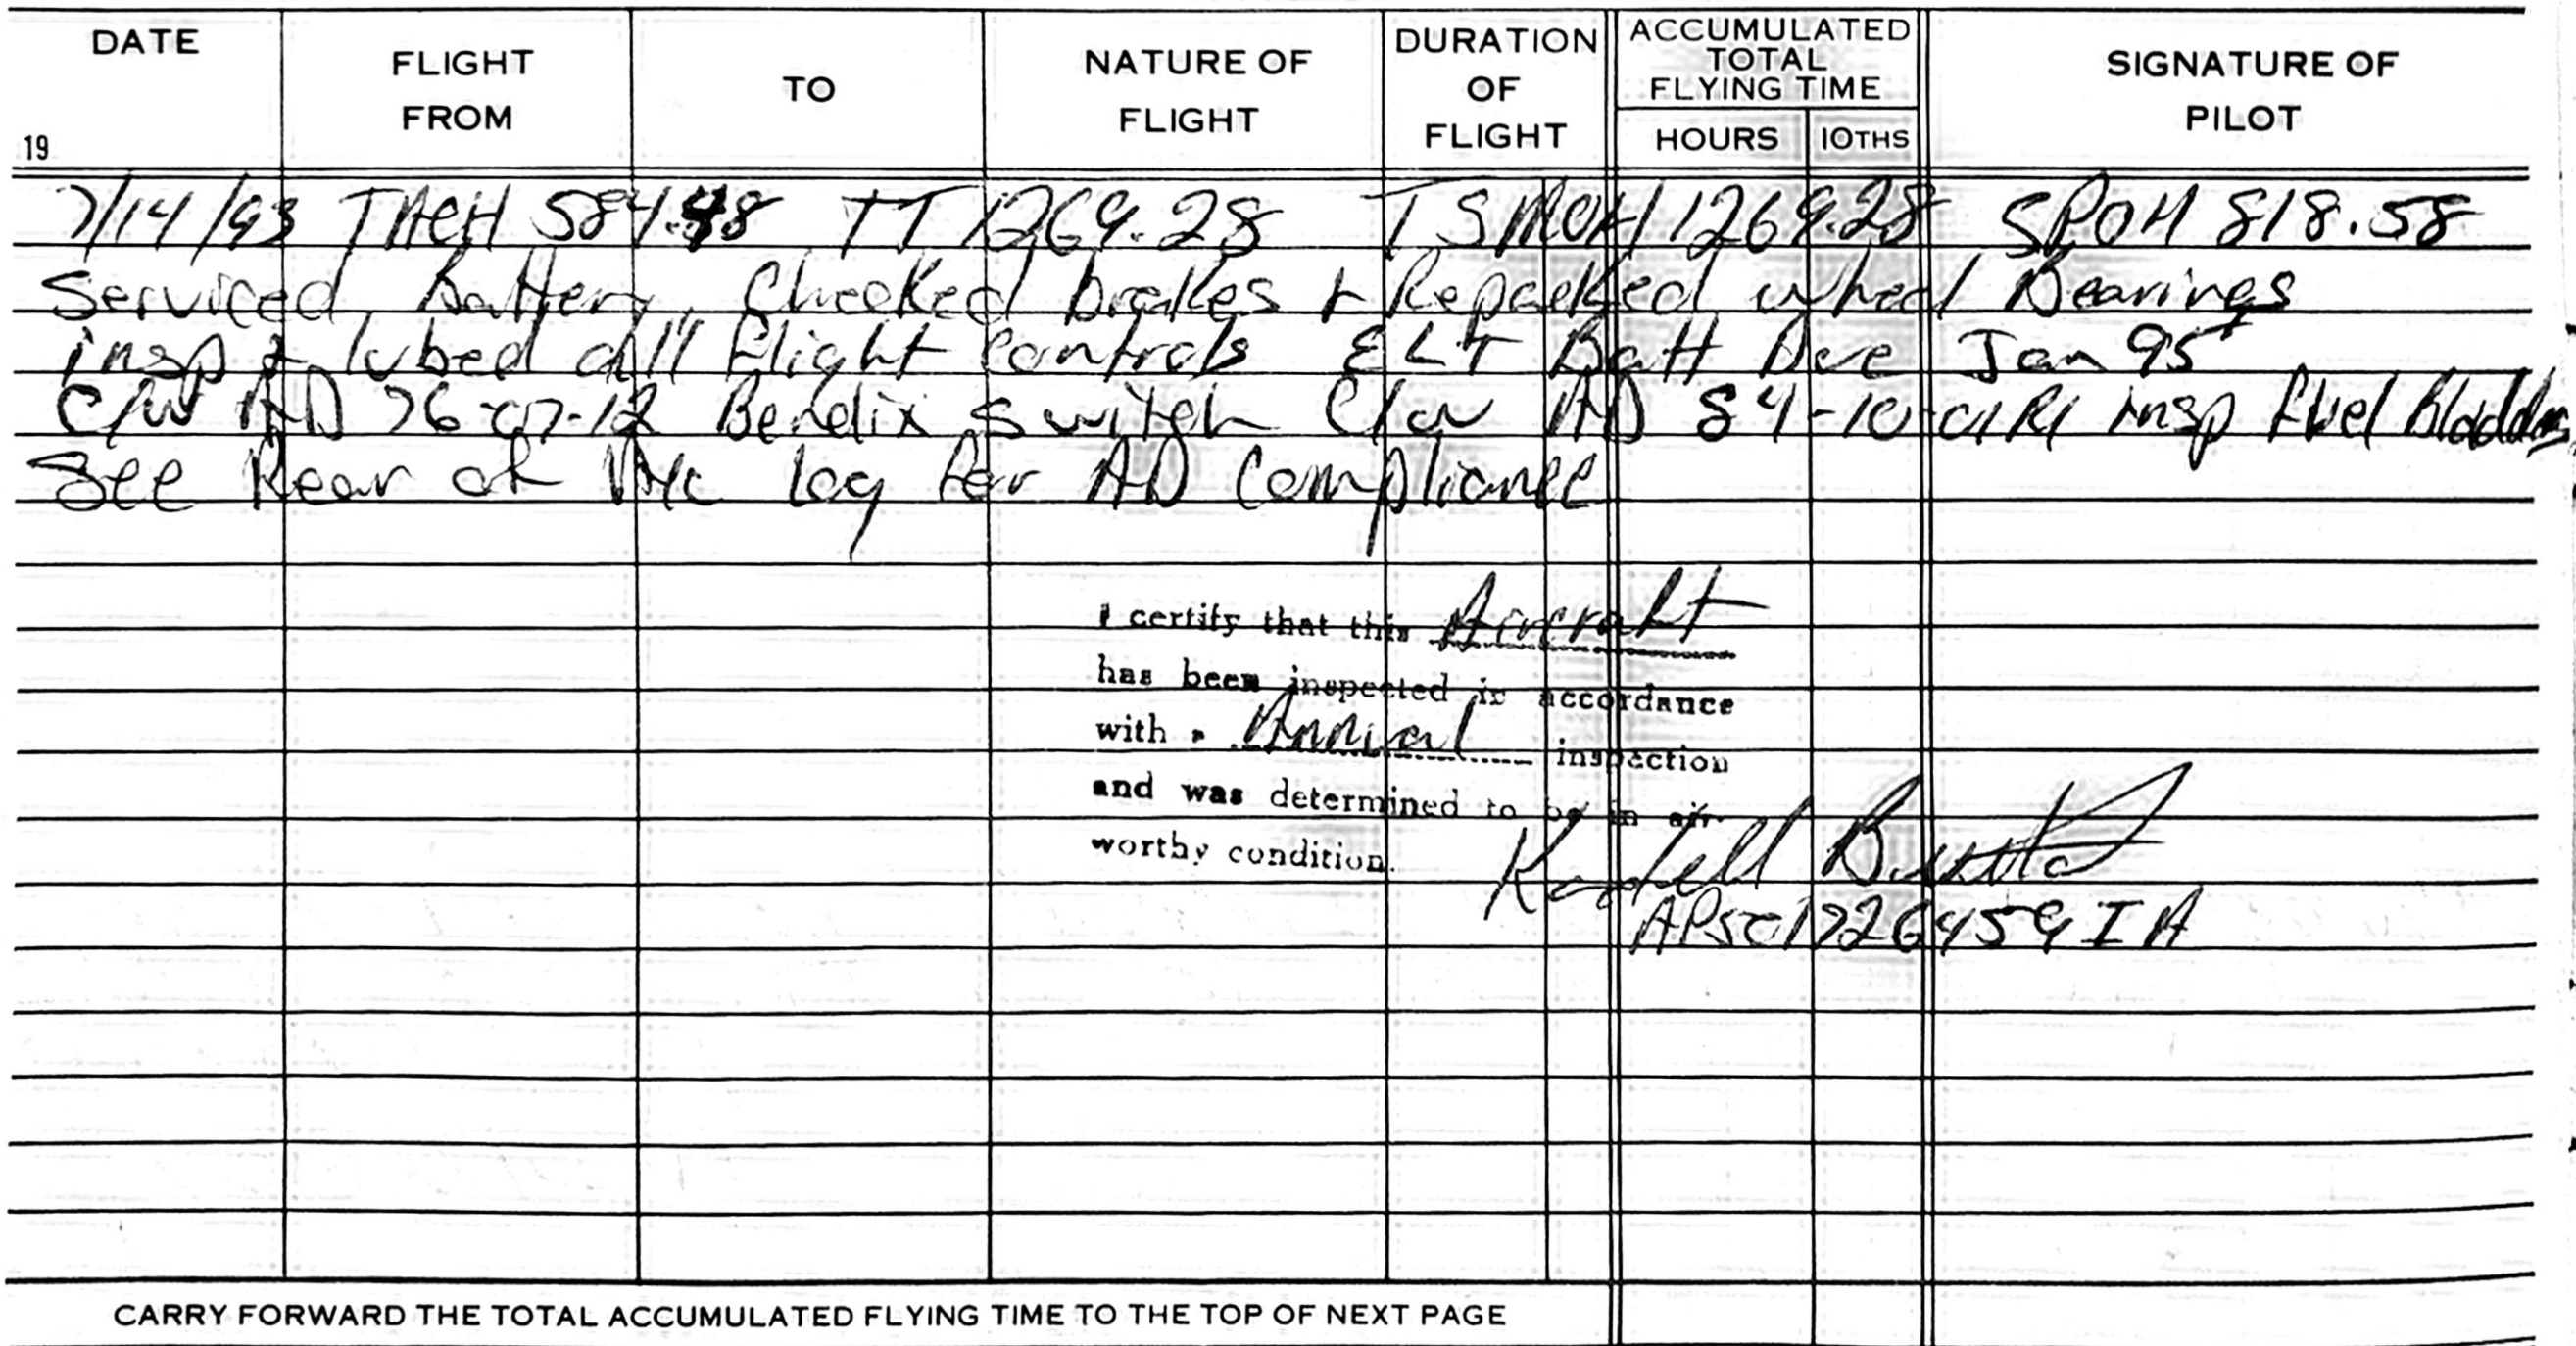 DATE
19
FLIGHT
FROM
TO
NATURE OF
FLIGHT
DURATION
OF
FLIGHT
ACCUMULATED
TOTAL
FLYING TIME
HOURS 10THS
SIGNATURE OF
PILOT
7/14/93 TACH 584.48 TT 1269.28 TSMOH 1269.28 SPOH 818.58
Serviced Battery, Checked brakes + Repacked wheel Bearings
insp + lubed all flight Controls ELT Batt Due Jan 95
C/W AD 76-07-12 Bendix Switch C/W AD 84-10-01R1 insp Fuel Bladders
See Rear of log for AD Compliance
I certify that this Aircraft
has been inspected in accordance
with a Annual inspection
and was determined to be in air-
worthy condition.
IA
CARRY FORWARD THE TOTAL ACCUMULATED FLYING TIME TO THE TOP OF NEXT PAGE